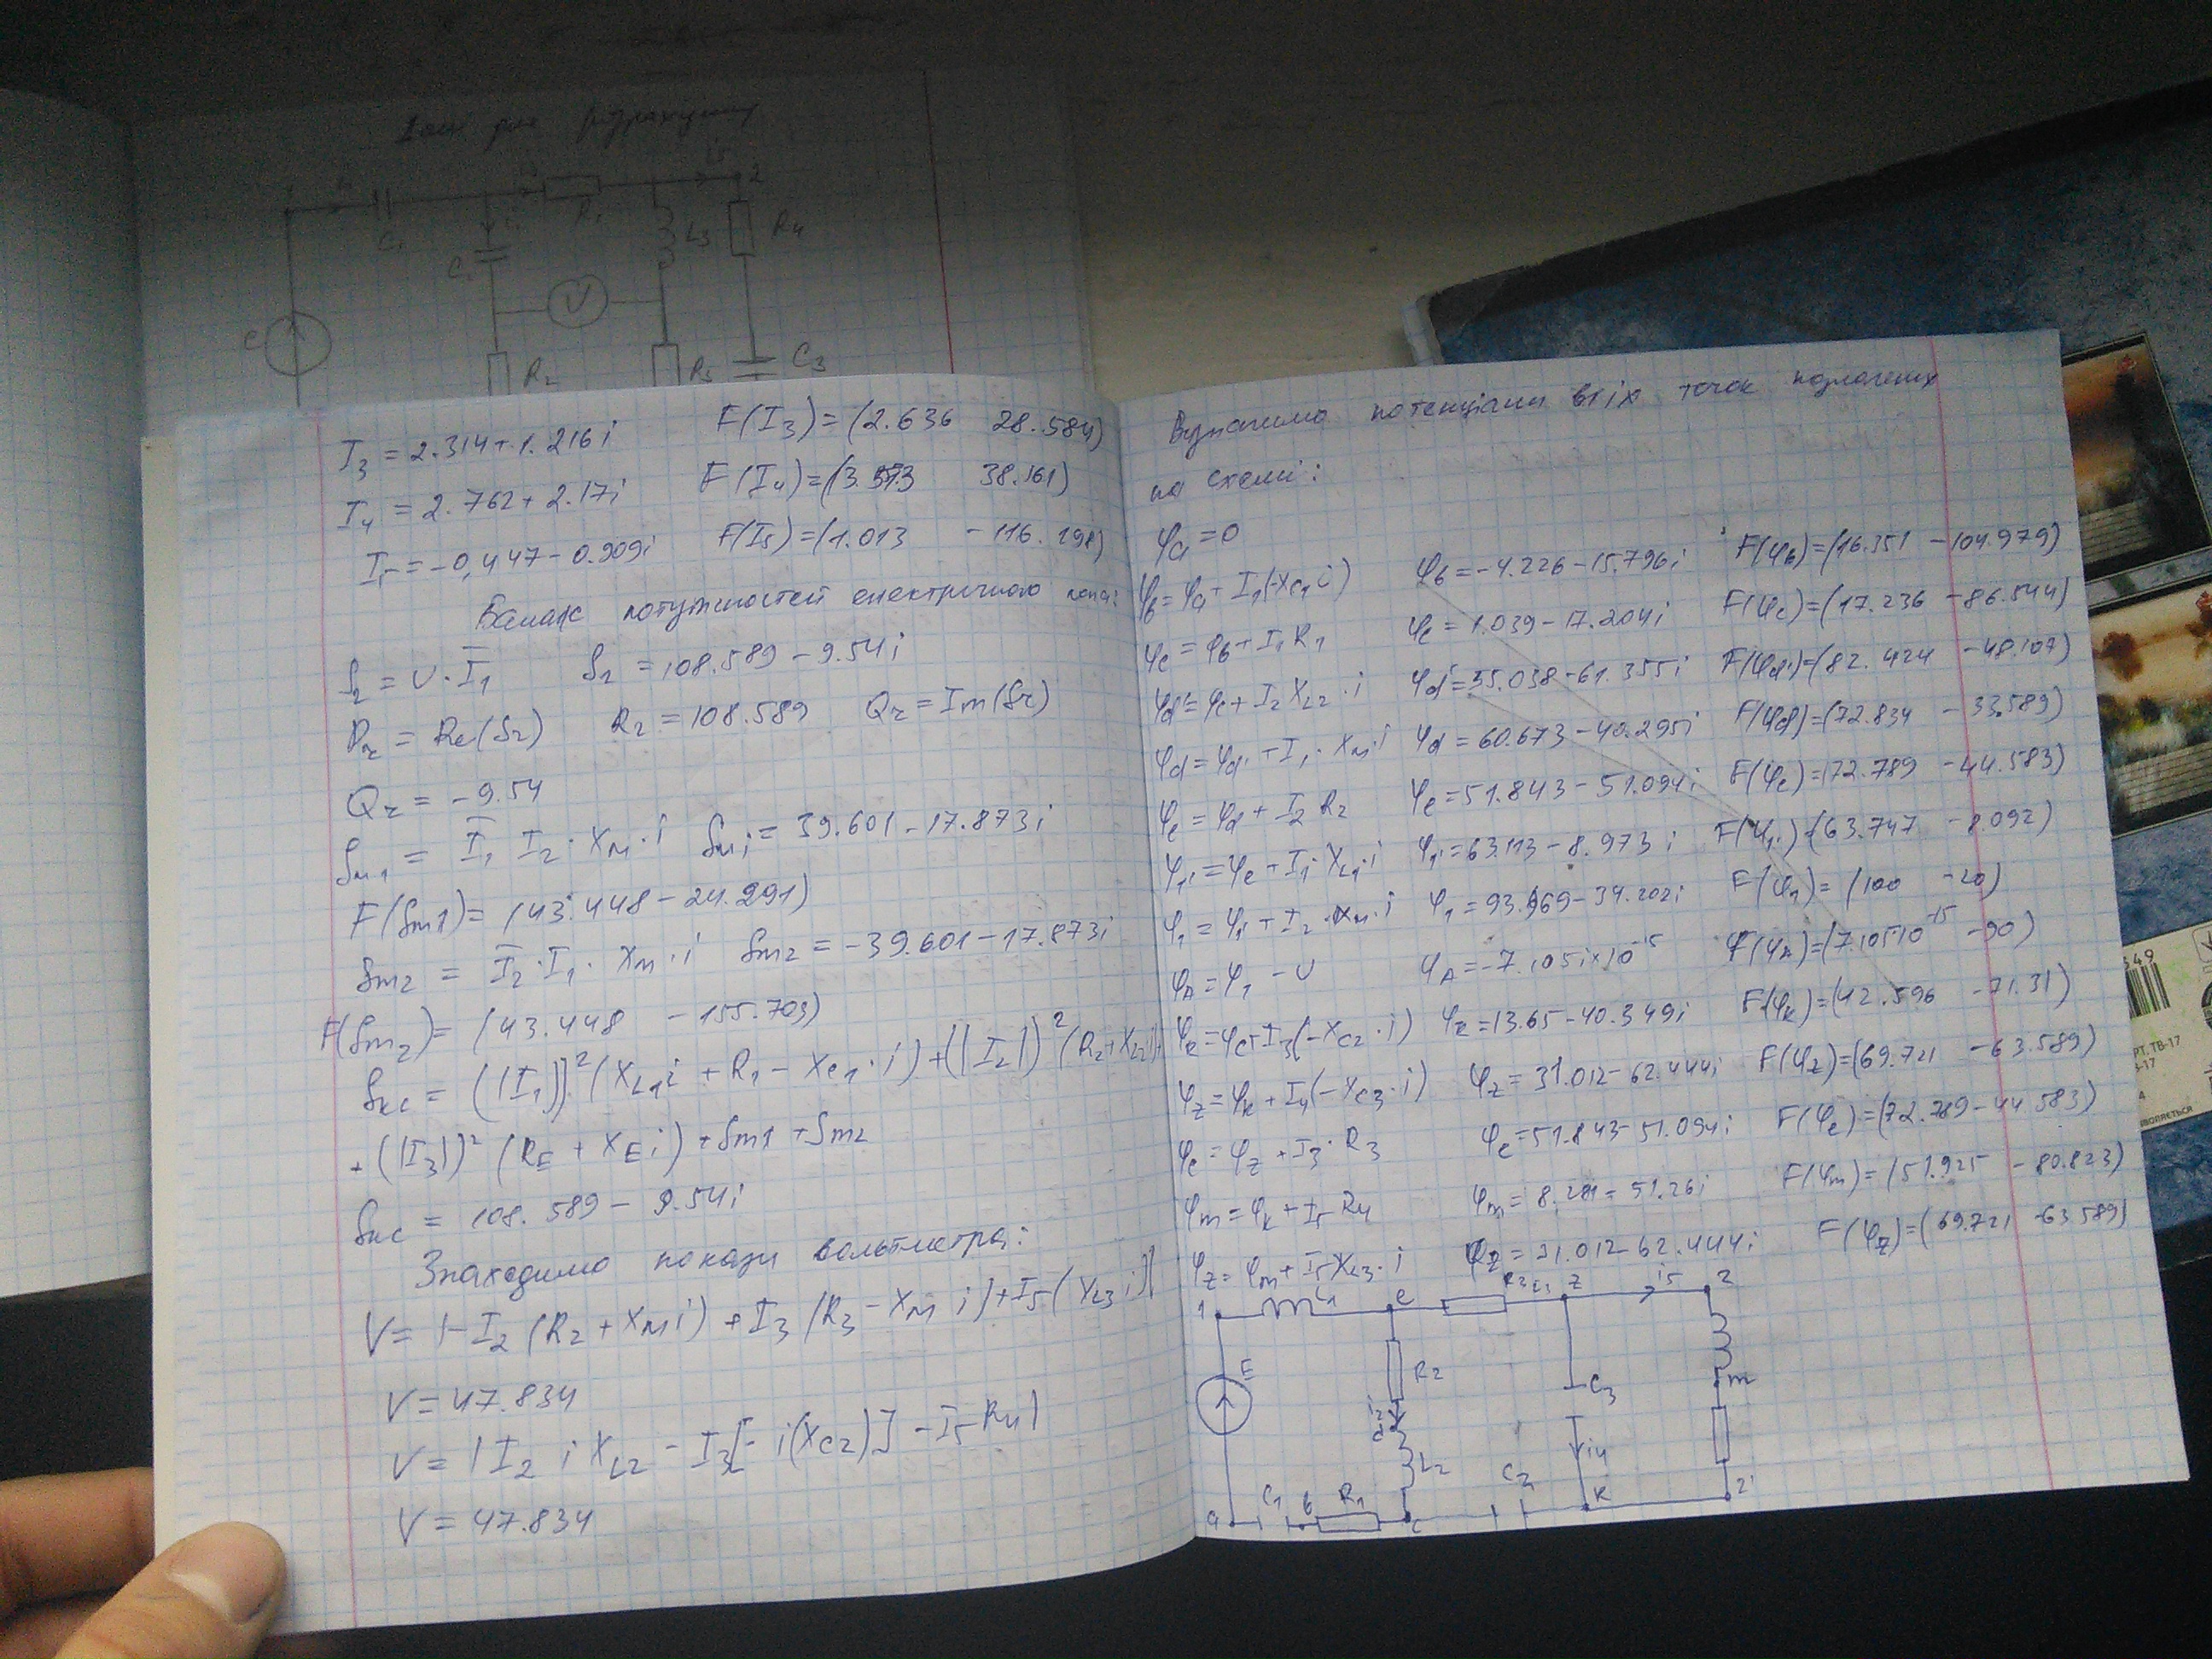 C₁
R₁
i₅
2
C
L₃
R₄
e
V
R₂
R₅
C₃
I₃ = 2.314+1.216i F(I₃)=(2.636 28.584)
I₄ = 2.762+2.17i F(I₄)=(3.513 38.161)
I₅=-0,447-0.909i F(I₅)=(1.013 -116.198)
Баланс потужностей електричного кола:
S₂ = U·I̅₁ S₂ = 108.589-9.54i
P₂ = Re(S₂) P₂ = 108.589 Q₂ = Im(S₂)
Q₂ = -9.54
Sм₁ = I̅₁ I₂·Xм·i Sм₁ = 39.601-17.873i
F(Sm1)= (43.448-24.291)
Sm2 = I̅₂·I₁·Xм·i Sm2 = -39.601-17.873i
F(Sm₂)= (43.448 -155.709)
Sкс = (|I₁|)²(X_L1 i + R₁ - Xc₁·i)+(|I₂|)²(R₂+X_L2 i)+
+(|I₃|)²(R_E + X_E i) + Sm1 + Sm2
Sкс = 108.589-9.54i
Знаходимо покази вольтметра:
V= |-I₂(R₂+Xмi)+I₃(R₃-Xм i)+I₅(X_L3 i)|
V=47.834
V=|I₂ i X_L2 - I₃[-i(Xc₂)] - I₅R₄|
V=47.834
Визначимо потенціали всіх точок
на схемі:
φa=0
φв=φa+I₁(-Xc₁i) φв=-4.226-15.796i F(φв)=(16.351 -104.979)
φc=φв+I₁R₁ φc=1.039-17.204i F(φc)=(17.236 -86.544)
φd'=φc+I₂X_L2·i φd'=55.038-61.355i F(φd')=(82.424 -48.107)
φd=φd'+I₁·Xм·i φd=60.673-40.295i F(φd)=(72.834 -33.589)
φe=φd+I₂R₂ φe=51.843-51.094i F(φe)=(72.789 -44.583)
φ₁'=φe+I₁·X_L1·i φ₁'=63.113-8.973i F(φ₁')=(63.747 -8.092)
φ₁=φ₁'+I₂·Xм·i φ₁=93.969-34.202i F(φ₁)=(100 -20)
φA=φ₁-U φA=-7.105i×10⁻¹⁵ F(φA)=(7.105·10⁻¹⁵ -90)
φk=φc+I₃(-Xc₂·i) φk=13.65-40.349i F(φk)=(42.596 -71.31)
φz=φk+I₄(-Xc₃·i) φz=31.012-62.444i F(φz)=(69.721 -63.589)
φe=φz+I₃·R₃ φe=51.843-51.094i F(φe)=(72.789-44.583)
φm=φk+I₅R₄ φm=8.281-51.26i F(φm)=(51.925 -80.823)
φz=φm+I₅X_L3·i φz=31.012-62.444i F(φz)=(69.721 -63.589)
1 L₁ e z i₅ 2
E R₂ C₃ m
i₂
d
L₂ i₄
a C₁ в R₁ c C₂ k 2'